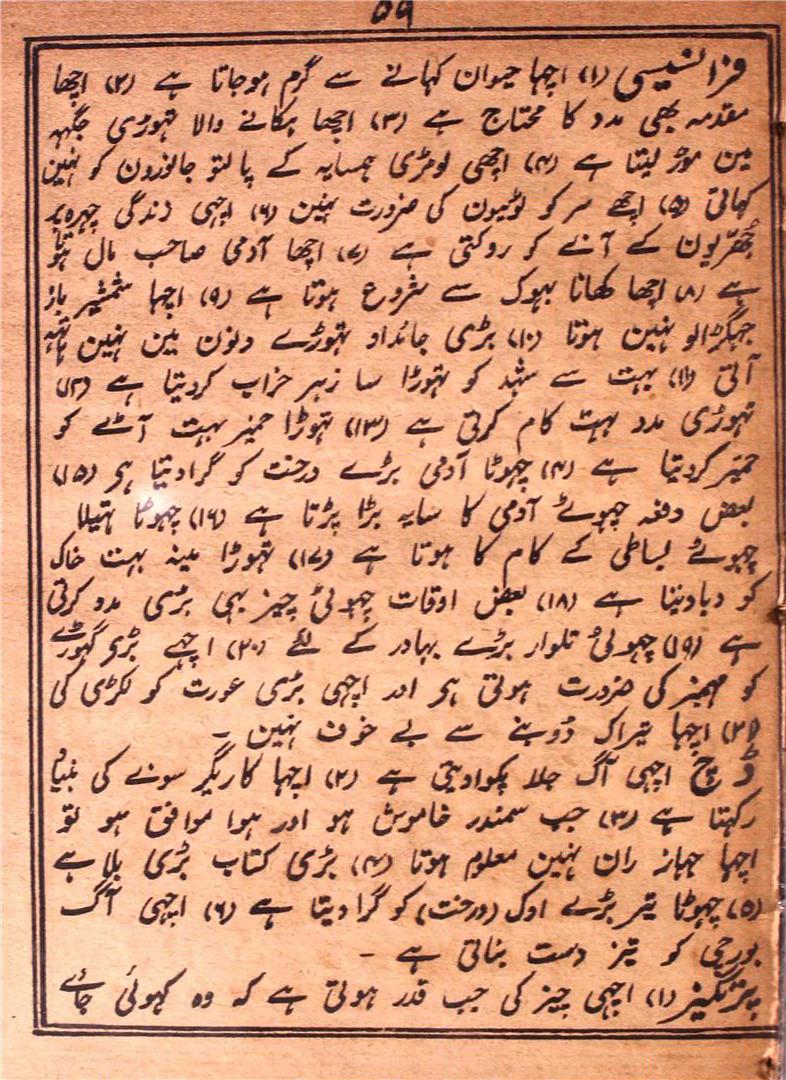 ۵۹
فرانسیسی (۱) اچہا حیوان کہانے سے گرم ہوجاتا ہے (۲) اچھا
مقدمہ بھی مدد کا محتاج ہے (۳) اچھا ہکانے والا تہوڑی جگہہ
مین موڑ لیتا ہے (۴) اچھی لومڑی ہمسایہ کے پالتو جانورون کو نہین
کہاتی (۵) اچھے سر کو ٹوپیون کی ضرورت نہین (۶) اچہی زندگی چہرہ پر
جھرّیون کے آنے کو روکتی ہے (۷) اچھا آدمی صاحب مال ہوتا
ہے (۸) اچھا کھانا بہوک سے شروع ہوتا ہے (۹) اچہا شمشیر باز
جہگڑالو نہین ہوتا (۱۰) بڑی جائداد تہوڑے دنون مین نہین ہاتھہ
آتی (۱۱) بہت سے شہد کو تہوڑا سا زہر خراب کردیتا ہے (۱۲)
تہوڑی مدد بہت کام کرتی ہے (۱۳) تہوڑا خمیر بہت آٹے کو
خمیر کردیتا ہے (۱۴) چہوٹا آدمی بڑے درخت کو گرادیتا ہر (۱۵)
بعض دفعہ چہوٹے آدمی کا سایہ بڑا پڑتا ہے (۱۶) چہوٹا تہیلا
چہوٹے بساطی کے کام کا ہوتا ہے (۱۷) تہوڑا مینہ بہت خاک
کو دبادیتا ہے (۱۸) بعض اوقات چہوٹی چیز بہی بڑی مدد کرتی
ہے (۱۹) چہوٹی تلوار بڑے بہادر کے لئے (۲۰) اچہے بڑی گہوڑے
کو مہمیز کی ضرورت ہوتی ہر اور اچہی بڑی عورت کو لکڑی کی
(۲۱) اچہا تیراک ڈوبنے سے بے خوف نہین ۔
ڈچ اچہی آگ جلا پکوادیتی ہے (۲) اچہا کاریگر سونے کی بنیاد
رکہتا ہے (۳) جب سمندر خاموش ہو اور ہوا موافق ہو تو
اچہا جہاز ران نہین معلوم ہوتا (۴) بڑی کتاب بڑی بلا ہے
(۵) چہوٹا تیر بڑے اوک (درخت) کو گرادیتا ہے (۶) اچہی آگ
بورچی کو تیز دست بناتی ہے ۔
پرتگیز (۱) اچہی چیز کی جب قدر ہوتی ہے کہ وہ کہوئی جاے